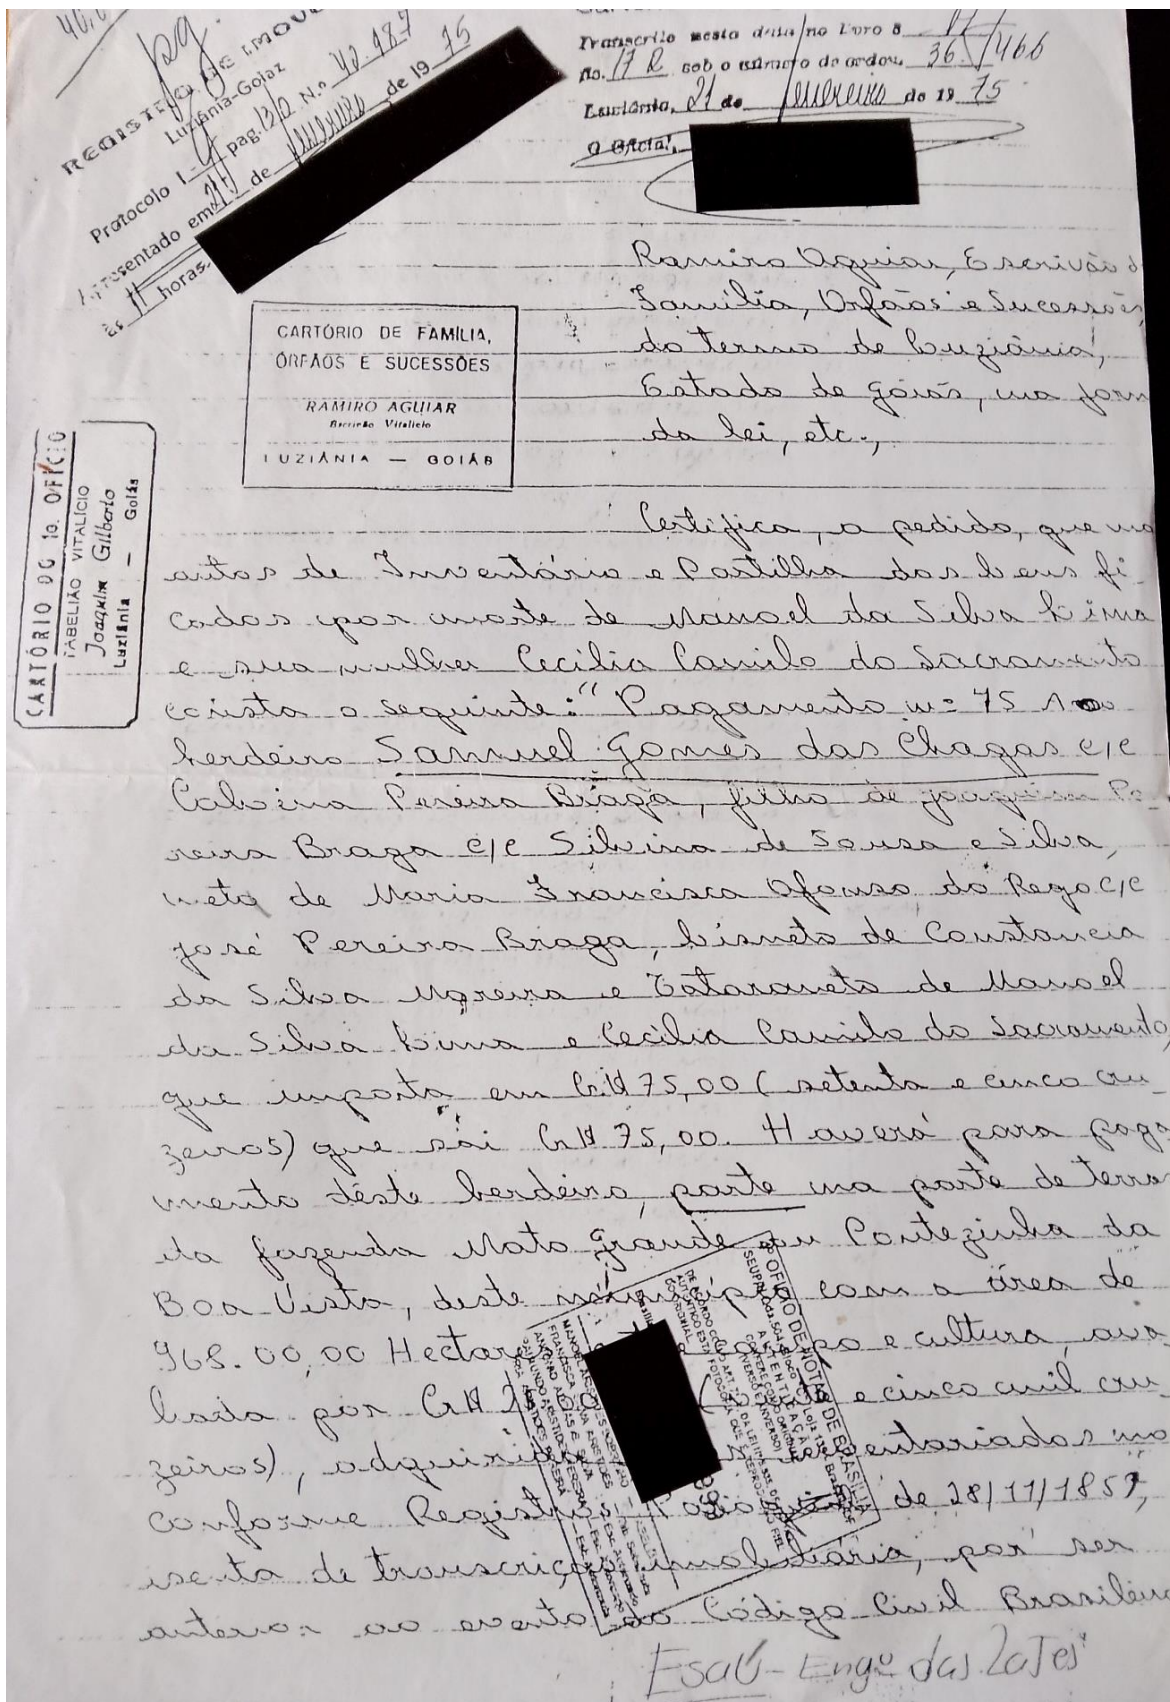 40,0
pg.
REGISTRO DE IMOVE
Luziânia-Goiaz
Protocolo 1- pag. 132 N.º 42.987
Apresentado em 21 de fevereiro de 1975
às 11 horas.
Transcrito nesta data no Livro 3
fls. 17 sob o número de ordem, 36.466
Luziânia, 21 de fevereiro de 1975
O Oficial,
Ramiro Aguiar, Escrivão d
Família, Orfãos e Sucessões,
do termo de Luziânia,
Estado de Goiás, na form
da lei, etc.,
CARTÓRIO DE FAMÍLIA,
ÓRFAOS E SUCESSÕES
RAMIRO AGUIAR
Escrivão Vitalício
LUZIÂNIA — GOIÁS
CARTÓRIO DO 1o. OFÍCIO
TABELIÃO VITALÍCIO
Joaquim Gilberto
Luziânia — Goiás
Certifica, a pedido, que no
autos de Inventário e Partilha dos bens fi
cados por morte de Manoel da Silva Lima
e sua mulher Cecília Camilo do Sacramento
consta o seguinte: "Pagamento nº 75 Ao
herdeiro Samuel Gomes das Chagas c/c
Calvina Pereira Braga, filho de Joaquim Pe-
reira Braga c/c Silvina de Sousa e Silva,
neto de Maria Francisca Afonso do Rego c/c
José Pereira Braga, bisneto de Constancia
da Silva Moreira e Tataraneto de Manoel
da Silva Lima e Cecília Camilo do Sacramento,
que importa em Cr$ 75,00 (setenta e cinco cru
zeiros) que sái Cr$ 75,00. Haverá para paga
mento dêste herdeiro, parte na parte de terra
da fazenda Mato Grande ou Pontezinha da
Boa Vista, deste município com a área de
968.00,00 Hectare e cultura, ava
liada por Cr$ e cinco mil cru
zeiros), adquirida inventariados no
conforme Registro de 28/11/1857,
isenta de transcrição imobiliária, por ser
anterior ao evento do Código Civil Brasileiro
OFÍCIO DE NOTAS DE BRASÍLIA
AUTENTICAÇÃO
CONFERE COM O ORIGINAL
Esaú - Engº das Lajes